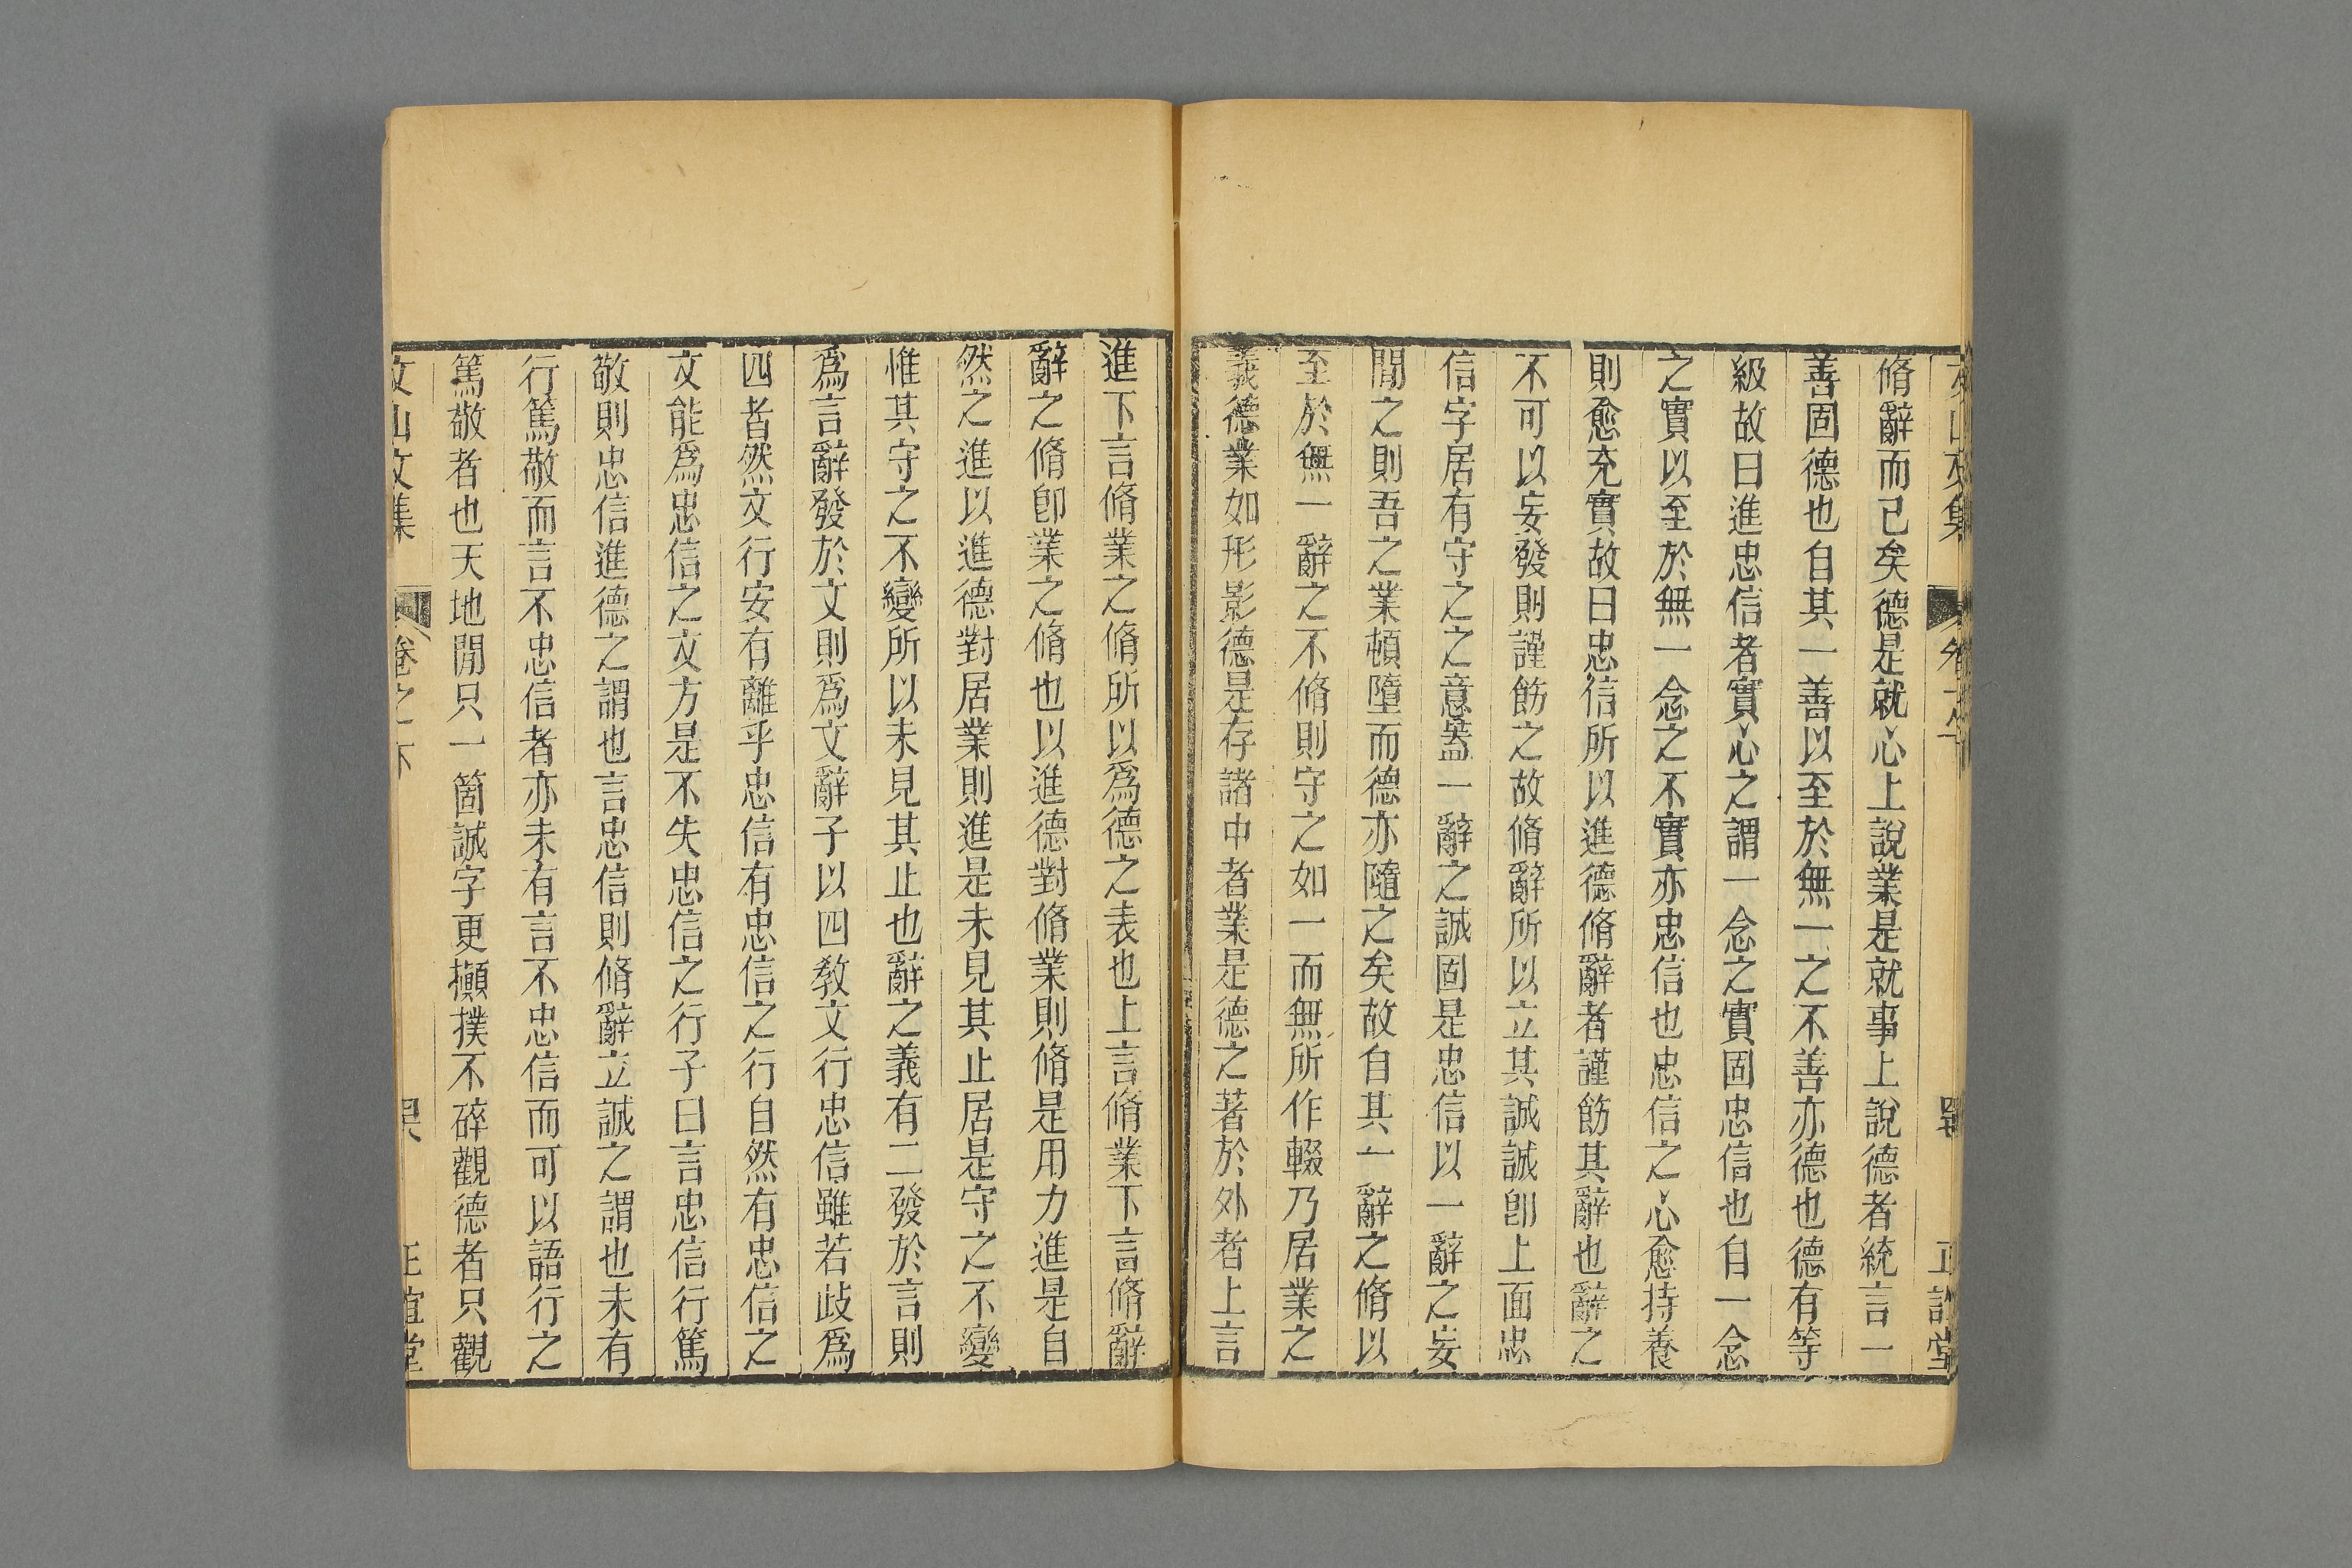 脩辭而已矣德是就心上說業是就事上說德者統言一
善固德也自其一善以至於無一之不善亦德也德有等
級故曰進忠信者實心之謂一念之實固忠信也自一念
之實以至於無一念之不實亦忠信也忠信之心愈持養
則愈充實故曰忠信所以進德脩辭者謹飭其辭也辭之
不可以妄發則謹飭之故脩辭所以立其誠誠卽上面忠
信字居有守之之意蓋一辭之誠固是忠信以一辭之妄
閒之則吾之業頓隳而德亦隨之矣故自其一辭之脩以
至於無一辭之不脩則守之如一而無所作輟乃居業之
義德業如形影德是存諸中者業是德之著於外者上言
進下言脩業之脩所以爲德之表也上言脩業下言脩辭
辭之脩卽業之脩也以進德對脩業則脩是用力進是自
然之進以進德對居業則進是未見其止居是守之不變
惟其守之不變所以未見其止也辭之義有二發於言則
爲言辭發於文則爲文辭子以四敎文行忠信雖若歧爲
四者然文行安有離乎忠信有忠信之行自然有忠信之
文能爲忠信之文方是不失忠信之行子曰言忠信行篤
敬則忠信進德之謂也言忠信則脩辭立誠之謂也未有
行篤敬而言不忠信者亦未有言不忠信而可以語行之
篤敬者也天地閒只一箇誠字更攧撲不碎觀德者只觀
文山文集 卷之下 正誼堂